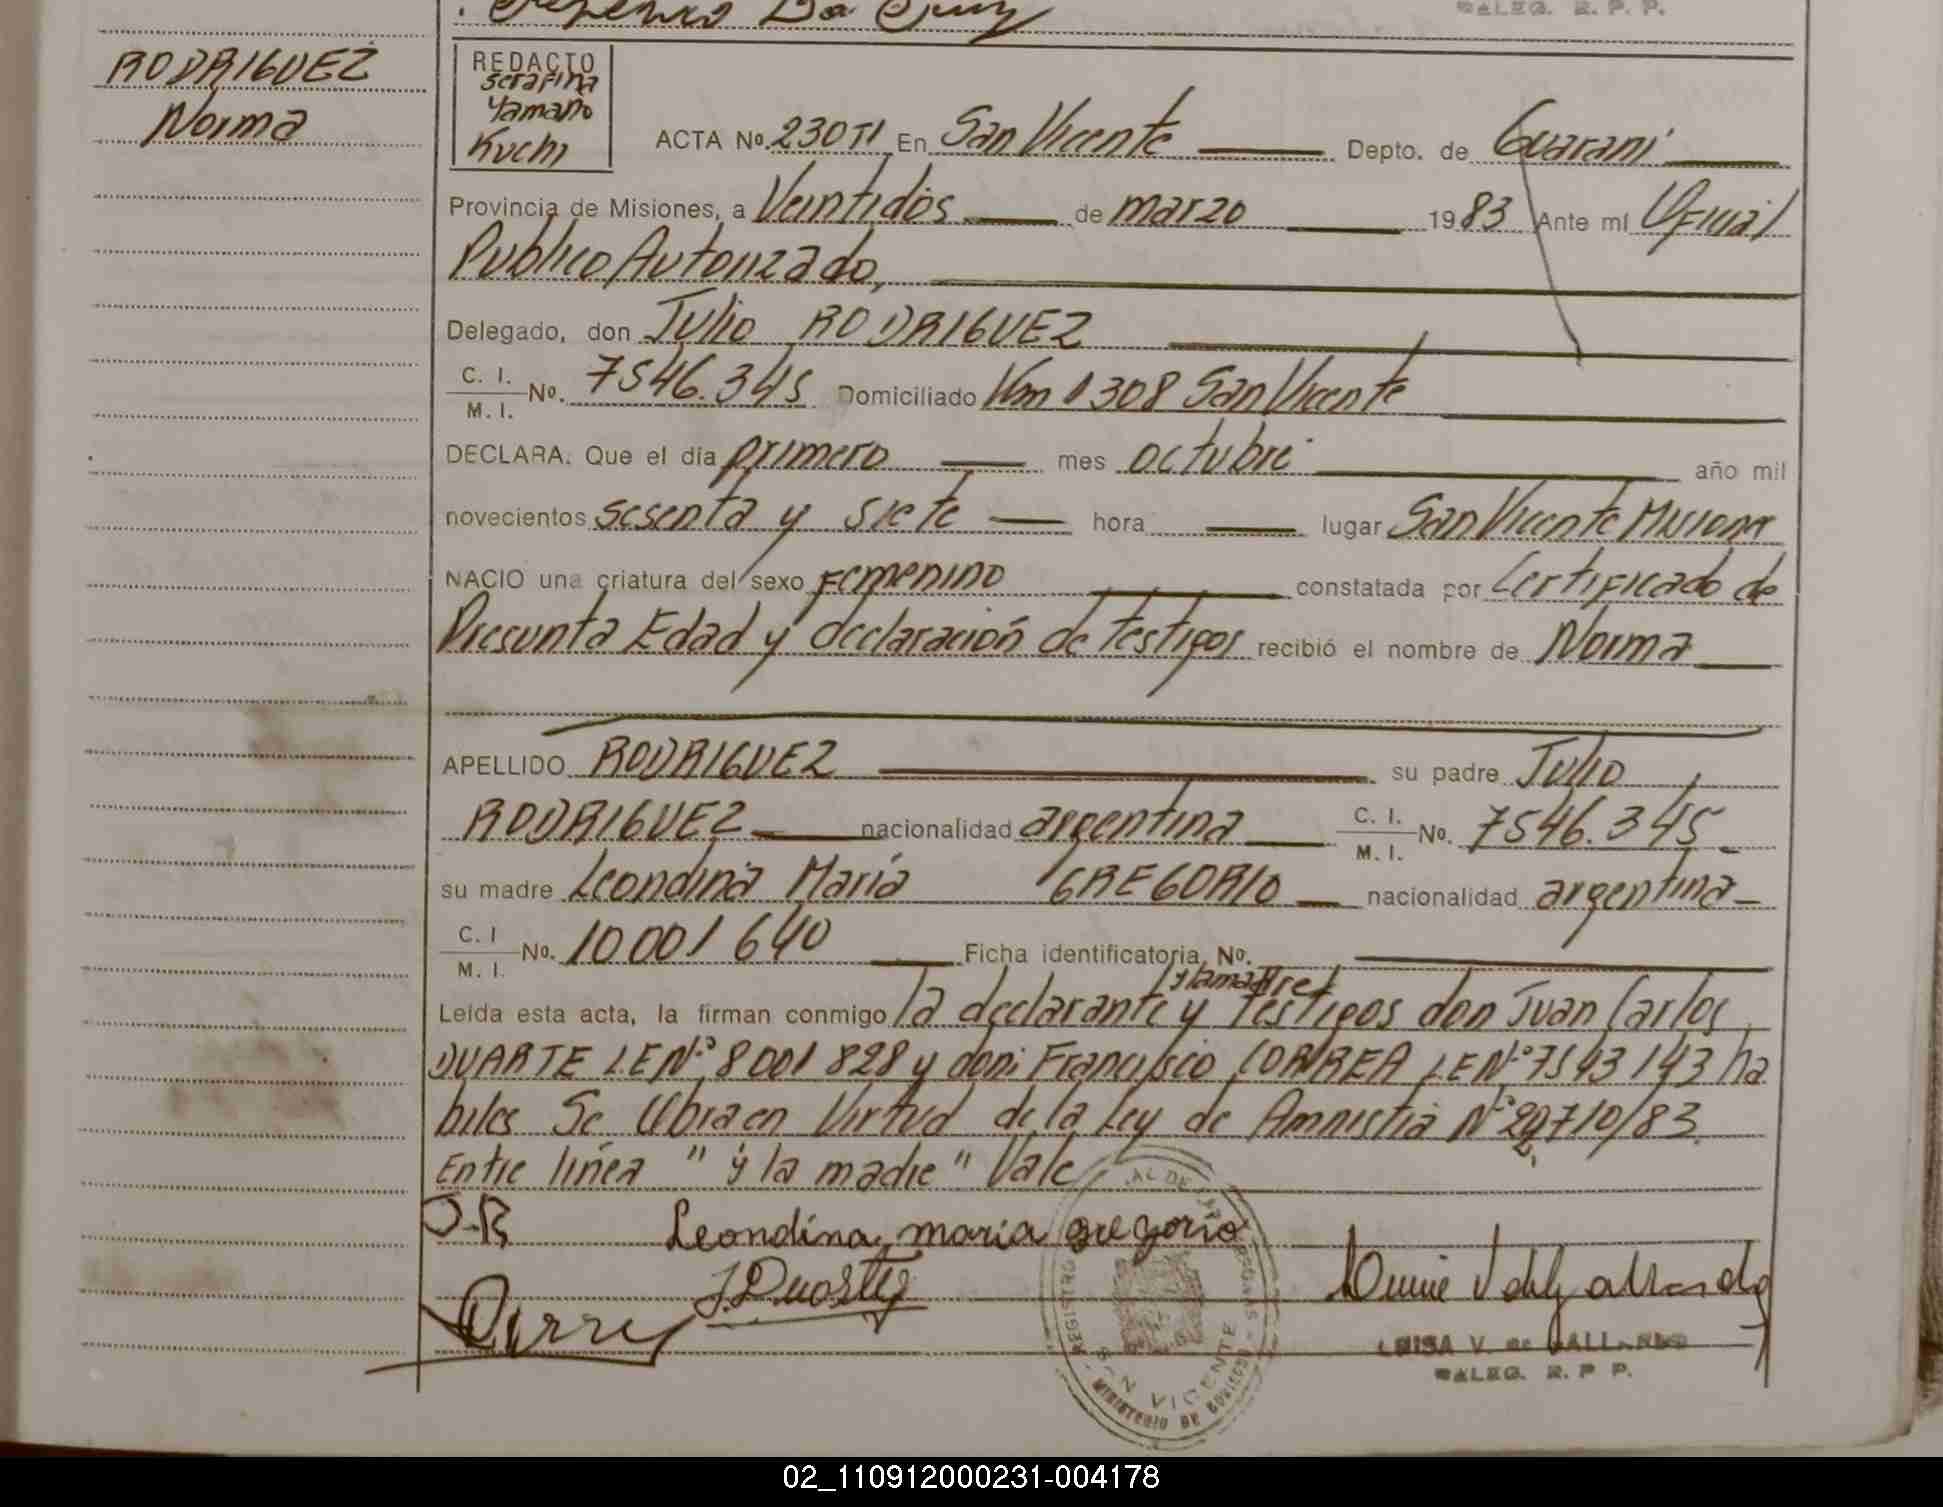 DALEG. R. P. P.
RODRIGUEZ
Norma
REDACTO
Serafina
Yamaño
Kuchi
ACTA No. 230 TI En San Vicente Depto. de Guaraní
Provincia de Misiones, a Veintidós de marzo 1983 Ante mí Oficial
Publico Autorizado,
Delegado, don Julio RODRIGUEZ
C. I. M. I. No. 7546.345 Domiciliado Km 1308 San Vicente
DECLARA: Que el día primero mes octubre año mil
novecientos sesenta y siete hora lugar San Vicente Misiones
NACIO una criatura del sexo Femenino constatada por Certificado de
Presunta Edad y declaración de testigos recibió el nombre de Norma
APELLIDO RODRIGUEZ su padre Julio
RODRIGUEZ nacionalidad argentina C. I. M. I. No. 7546.345
su madre Leondina María GREGORIO nacionalidad argentina
C. I M. I. No. 10001640 Ficha identificatoria No.
y la madre
Leída esta acta, la firman conmigo la declarante y testigos don Juan Carlos
DUARTE LE Nº 8001828 y don: Francisco CORREA LE Nº 7543143 ha
biles Se labra en Virtud de la Ley de Amnistia Nº 22710/83
Entre línea " y la madre" Vale
J.R Leondina maria gregorio
J. Duarte
LUISA V. de GALLARDO
DALEG. R. P P.
SAN VICENTE
MINISTERIO DE GOBIERNO
02_110912000231-004178